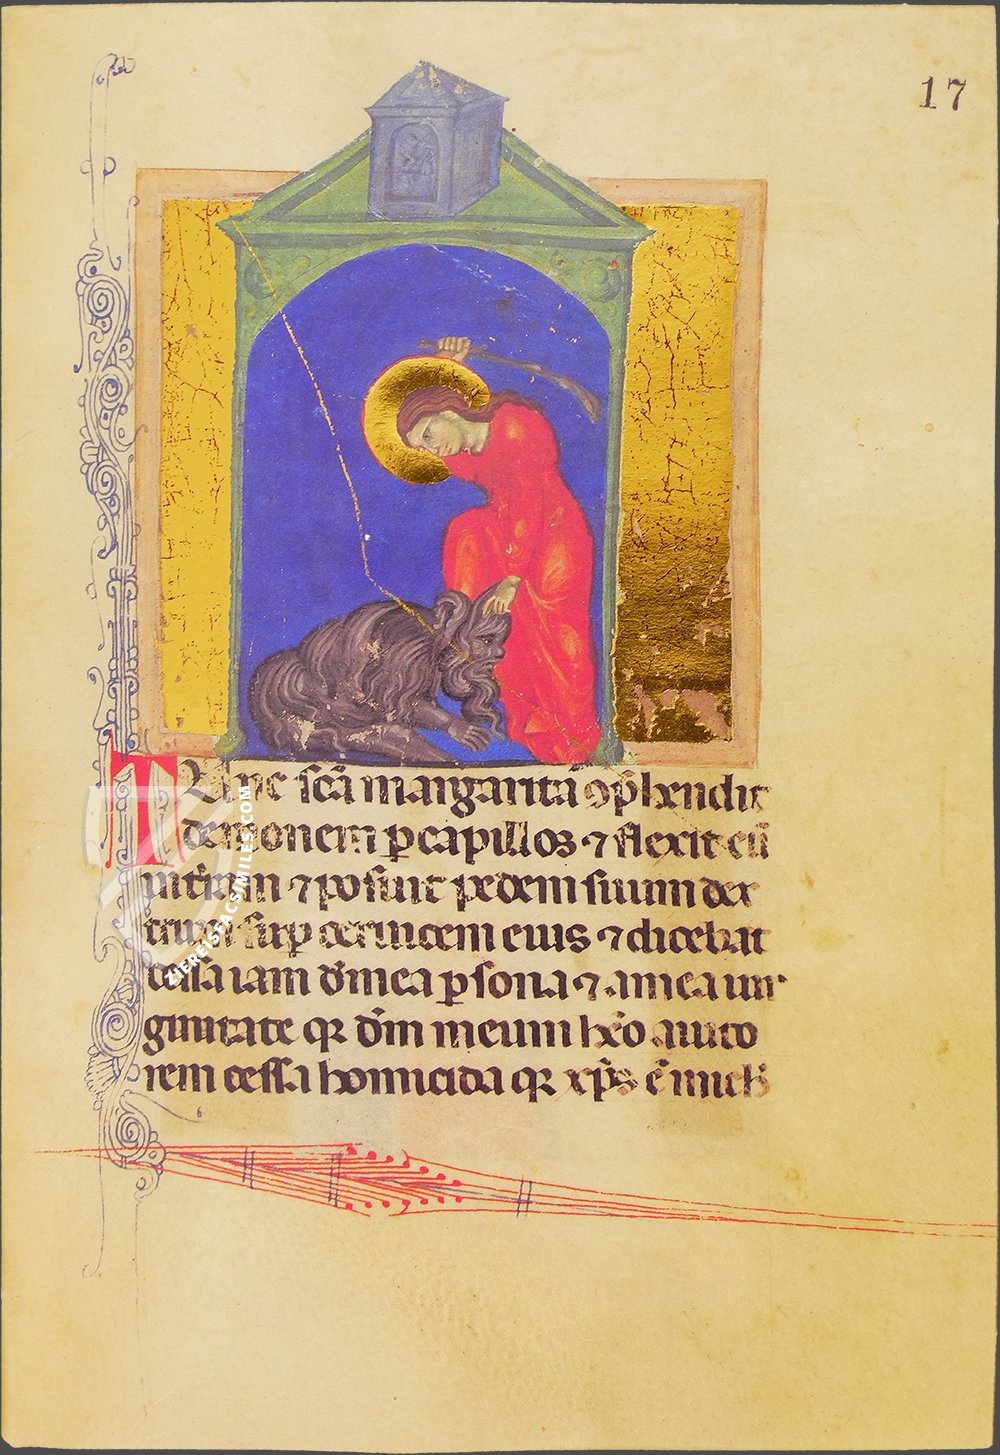 17
Tunc scā margaritā ꝯp̄hendit
demonem ꝑ capillos ⁊ flexit eū
in t̄ram ⁊ posuit pedem suum dex
trum suꝑ ceruicem eius ⁊ dicebat
cessa iam d̄ mea ꝑsona ⁊ a mea uir
ginitate qꝛ dn̄m meum hēo aiuto
rem cessa homicida qꝛ xp̄s ē mich
ZIEREISFACSIMILES.COM